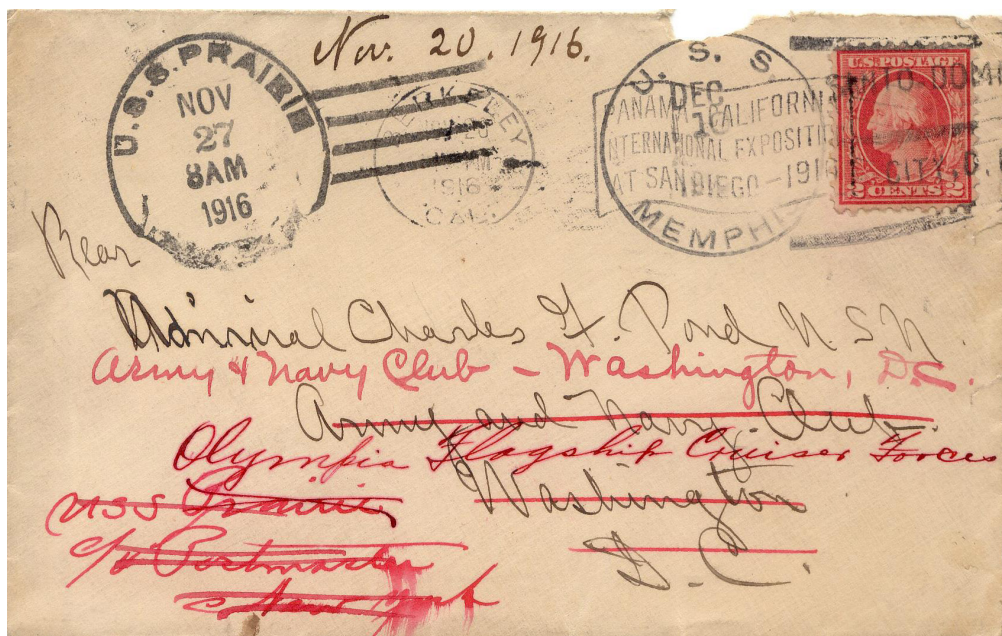 Nov. 20. 1916.
U.S.S. PRAIRIE
NOV
27
8AM
1916
BERKELEY
1916
CAL.
U. S. S.
MEMPHIS
DEC
10
PANAMA-CALIFORNIA
INTERNATIONAL EXPOSITION
AT SAN DIEGO-1916
SANTO DOMI
CITY, D.
U.S. POSTAGE
2 CENTS 2
Rear
Admiral Charles F. Pond U.S.N.
Army & Navy Club - Washington, D.C.
Army and Navy Club.
Olympia Flagship Cruiser Forces
Washington
USS Prairie,
c/o Postmaster
D.C.
New York